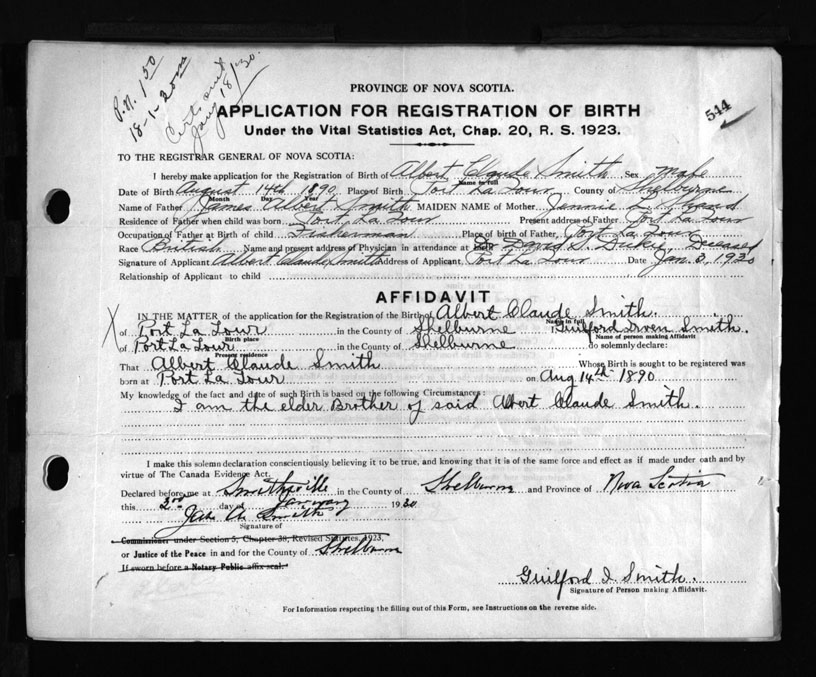 P.N. 1 50
18-1-20
Jany 18/30.
544
PROVINCE OF NOVA SCOTIA.
APPLICATION FOR REGISTRATION OF BIRTH
Under the Vital Statistics Act, Chap. 20, R. S. 1923.
TO THE REGISTRAR GENERAL OF NOVA SCOTIA:
I hereby make application for the Registration of Birth of Albert Claude Smith Sex Male
Name in full
Date of Birth August 14th 1890 Place of Birth Port La Tour County of Shelburne
Month Day Year
Name of Father James Albert Smith MAIDEN NAME of Mother Jennie L.
Residence of Father when child was born Port La Tour Present address of Father Port La Tour
Occupation of Father at Birth of child Fisherman Place of birth of Father, Port La Tour
Race British Name and present address of Physician in attendance at Birth Dr David S. Deceased
Signature of Applicant Albert Claude Smith Address of Applicant Port La Tour Date Jan. 3, 1930
Relationship of Applicant to child
AFFIDAVIT
IN THE MATTER of the application for the Registration of the Birth of Albert Claude Smith.
Name in full
X of Port La Tour in the County of Shelburne I, Guilford Irven Smith.
Birth place Name of person making Affidavit
of Port La Tour in the County of Shelburne do solemnly declare:
Present residence
That Albert Claude Smith Whose Birth is sought to be registered was
born at Port La Tour on Aug 14th 1890
My knowledge of the fact and date of such Birth is based on the following Circumstances:
I am the elder Brother of said Albert Claude Smith.
I make this solemn declaration conscientiously believing it to be true, and knowing that it is of the same force and effect as if made under oath and by
virtue of The Canada Evidence Act.
Declared before me at Smithsville in the County of Shelburne and Province of Nova Scotia
this 2nd day of January 1930
A. Smith
Signature of
Commissioner under Section 5, Chapter 38, Revised Statutes, 1923,
or Justice of the Peace in and for the County of Shelburne
If sworn before a Notary Public affix seal.
Guilford I. Smith.
Signature of Person making Affidavit.
For Information respecting the filling out of this Form, see Instructions on the reverse side.